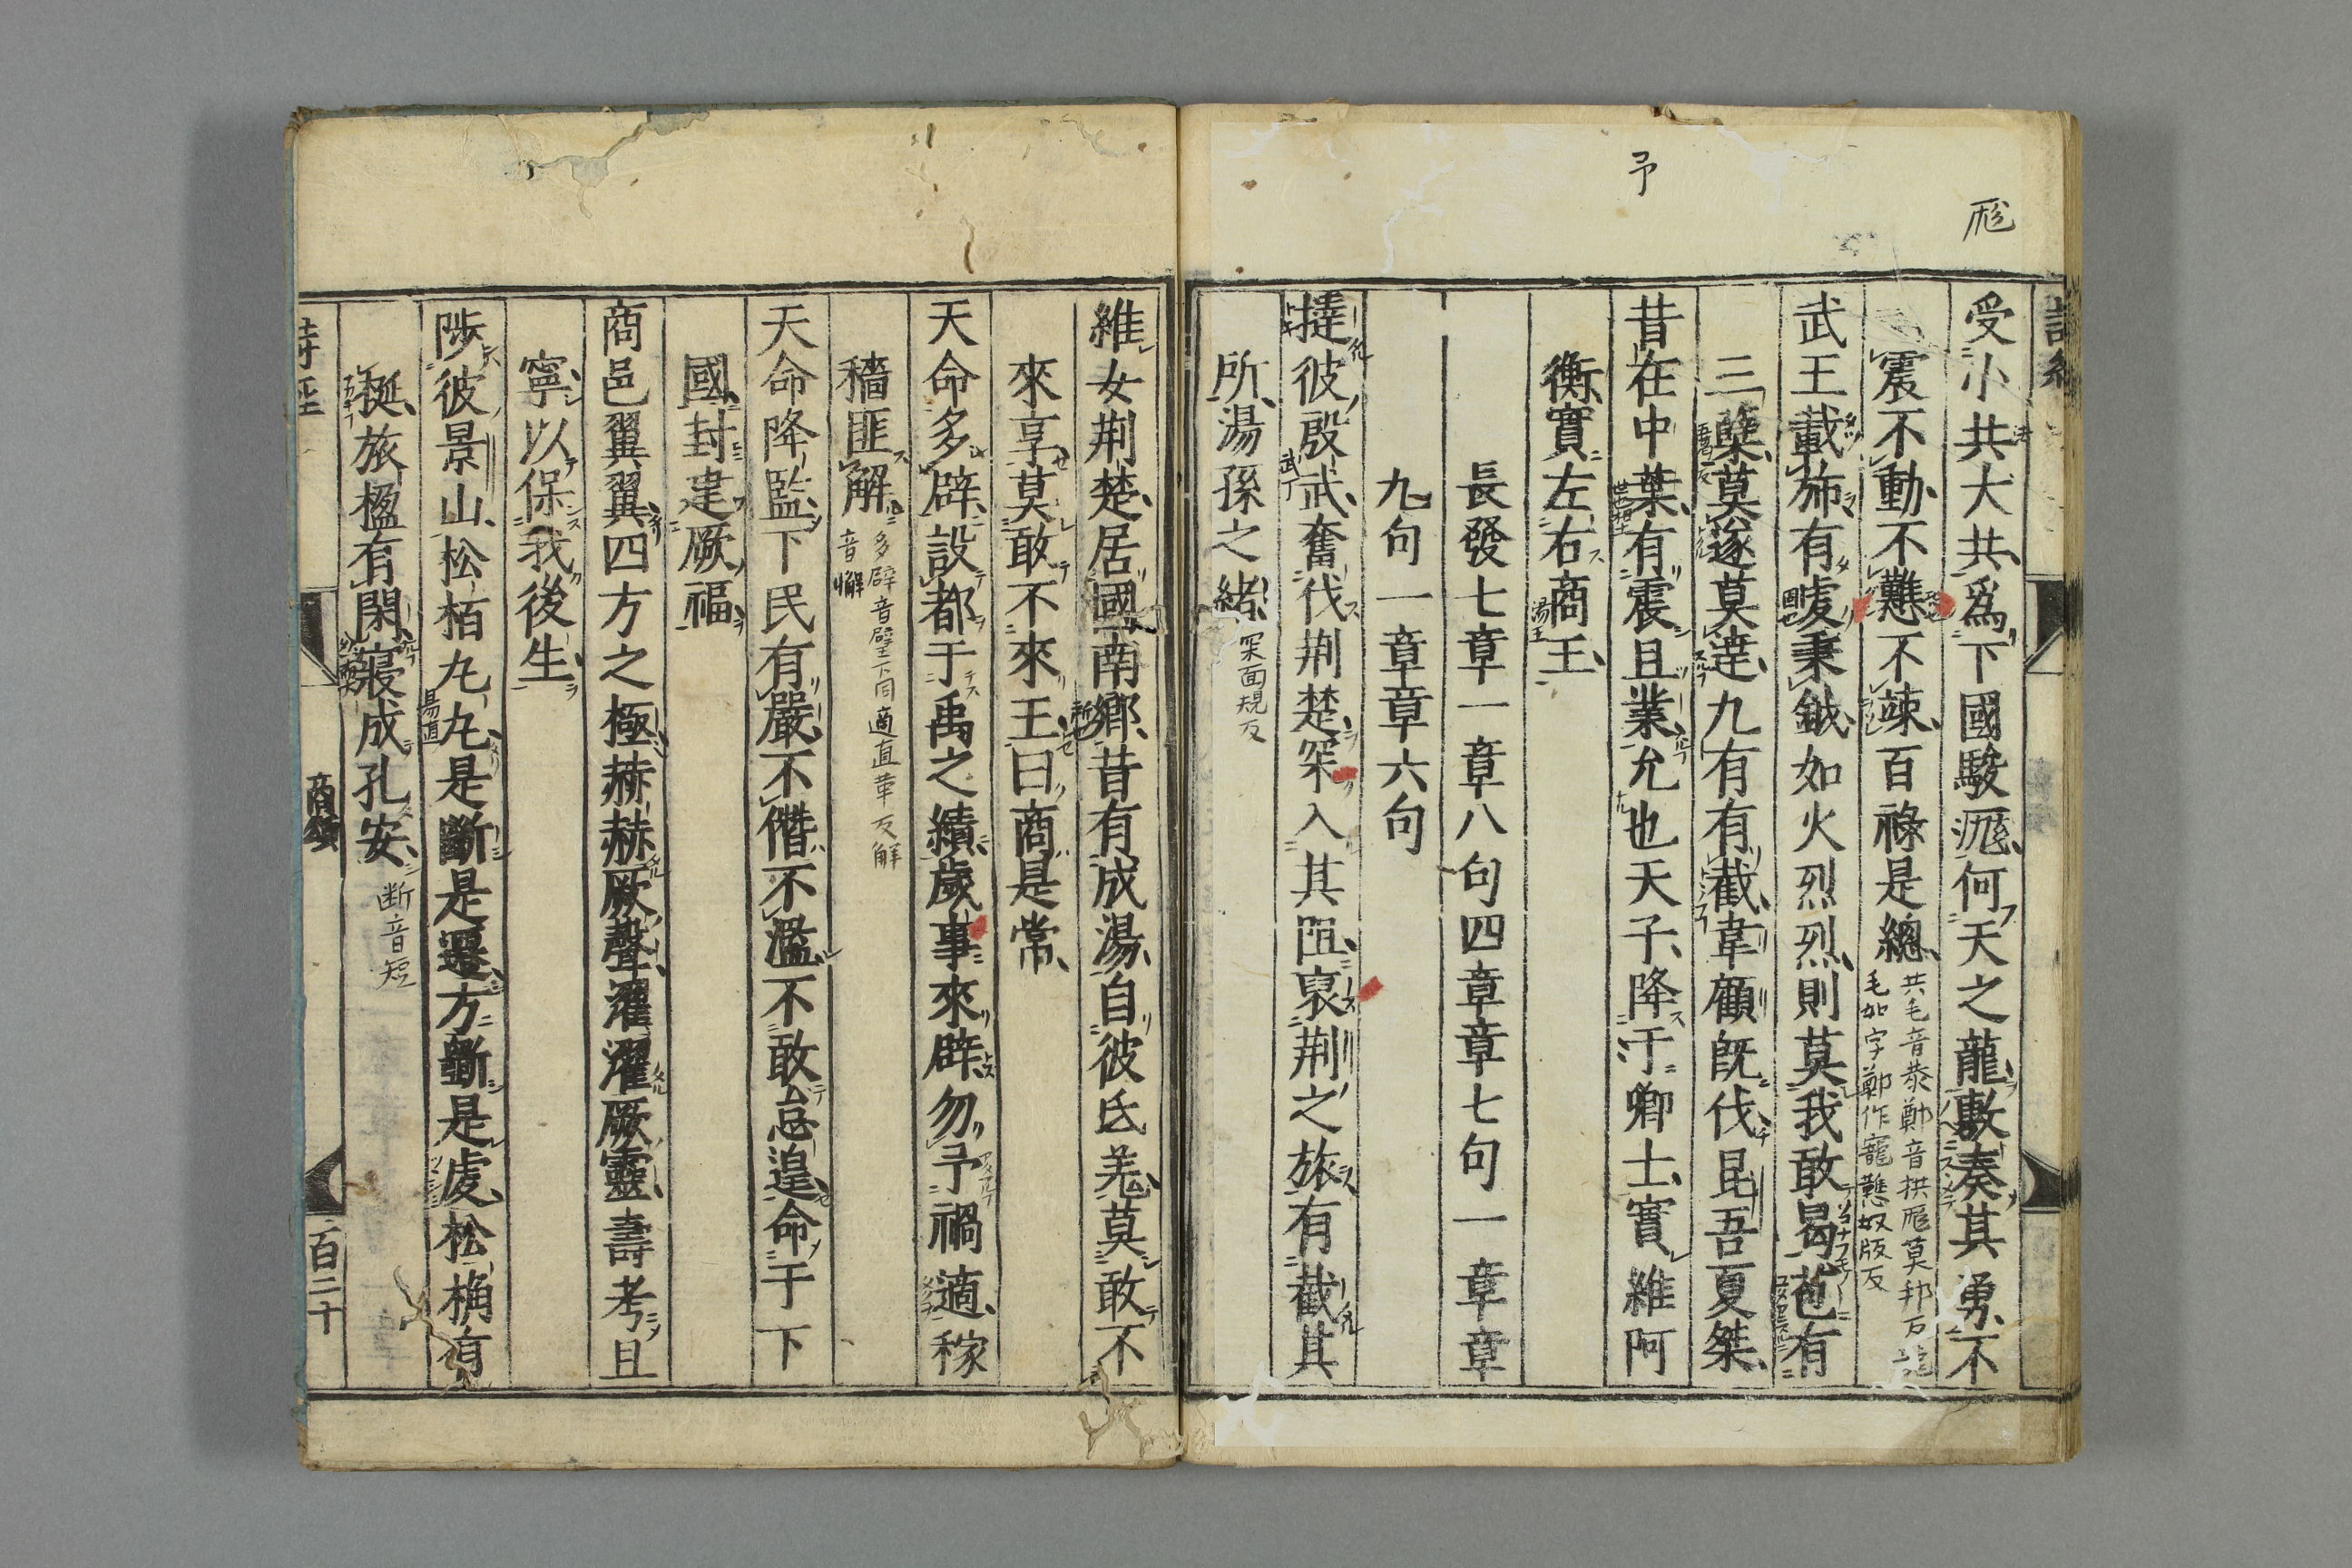 予
厖
受小共大共爲下國駿厖何天之龍敷奏其勇不
震不動不戁不竦百祿是總
共毛音恭鄭音拱厖莫邦反龍
毛如字鄭作寵戁奴版反
武王載斾有虔秉鉞如火烈烈則莫我敢曷苞有
三蘖莫遂莫達九有有截韋顧旣伐昆吾夏桀
昔在中葉有震且業允也天子降于卿士實維阿
衡實左右商王
湯王
長發七章一章八句四章章七句一章章
九句一章章六句
撻彼殷武奮伐荆楚罙入其阻裒荆之旅有截其
武丁
所湯孫之緖
罙面規反
維女荆楚居國南鄉昔有成湯自彼氐羌莫敢不
來享莫敢不來王曰商是常
天命多辟設都于禹之績歲事來辟勿予禍適稼
穡匪解
多辟音璧下同適直革反解
音懈
天命降監下民有嚴不僭不濫不敢怠遑命于下
國封建厥福
商邑翼翼四方之極赫赫厥聲濯濯厥靈壽考且
寧以保我後生
陟彼景山松栢丸丸是斷是遷方斲是虔松桷有
梴旅楹有閑寢成孔安
断音短
詩經
商頌
百二十